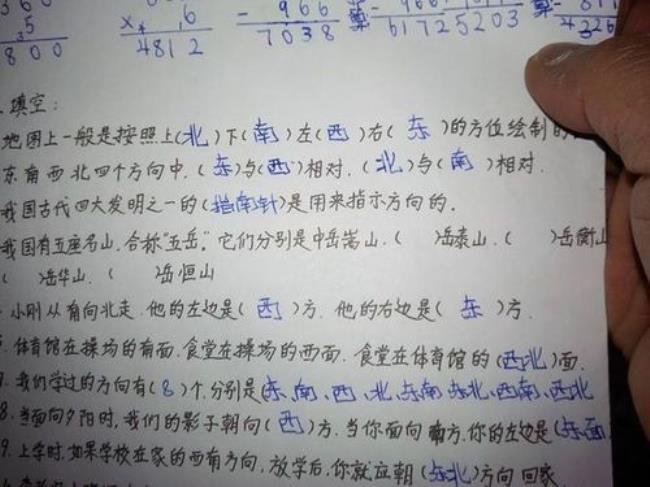 800
× 6
4812
- 966
7038
61725203
填空:
地图上一般是按照上(北)下(南)左(西)右(东)的方位绘制的
东南西北四个方向中.(东)与(西)相对.(北)与(南)相对.
我国古代四大发明之一的(指南针)是用来指示方向的.
我国有五座名山.合称"五岳".它们分别是中岳嵩山.( )岳泰山.( )岳衡山
( )岳华山.( )岳恒山
小刚从南向北走.他的左边是(西)方.他的右边是(东)方.
体育馆在操场的南面.食堂在操场的西面.食堂在体育馆的(西北)面.
7.我们学过的方向有(8)个.分别是(东、南、西、北、东南、东北、西南、西北
8.当面向夕阳时,我们的影子朝向(西)方.当你面向南方.你的左边是(东面
9.上学时.如果学校在家的西南方向,放学后.你就应朝(东北)方向回家.